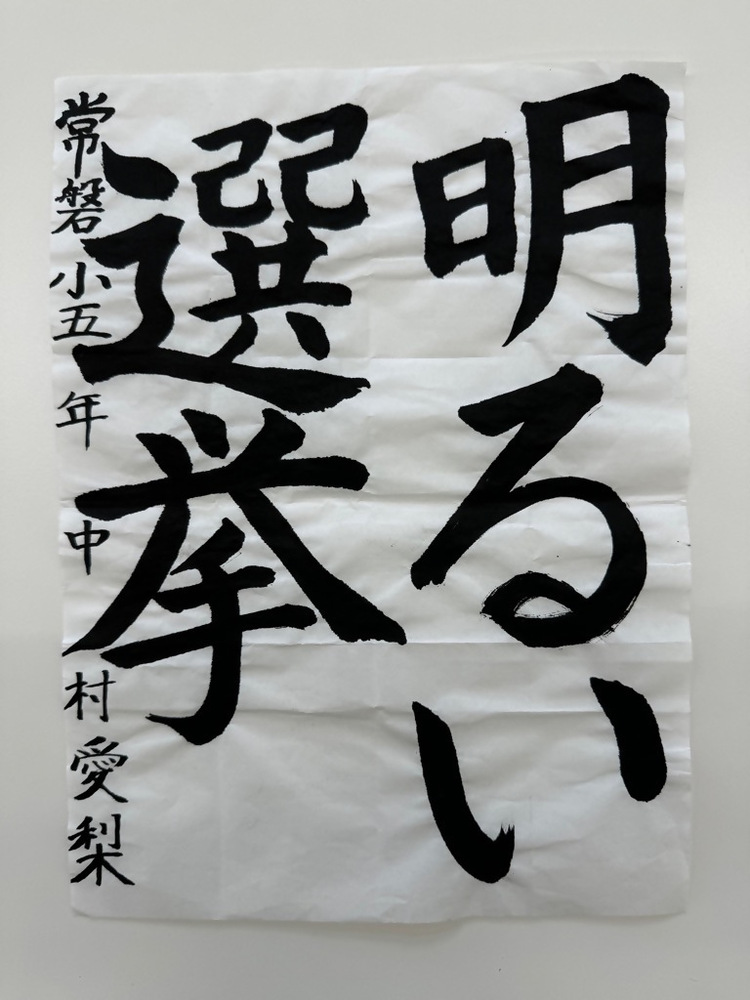 明るい
選挙
常磐小五年中村愛梨